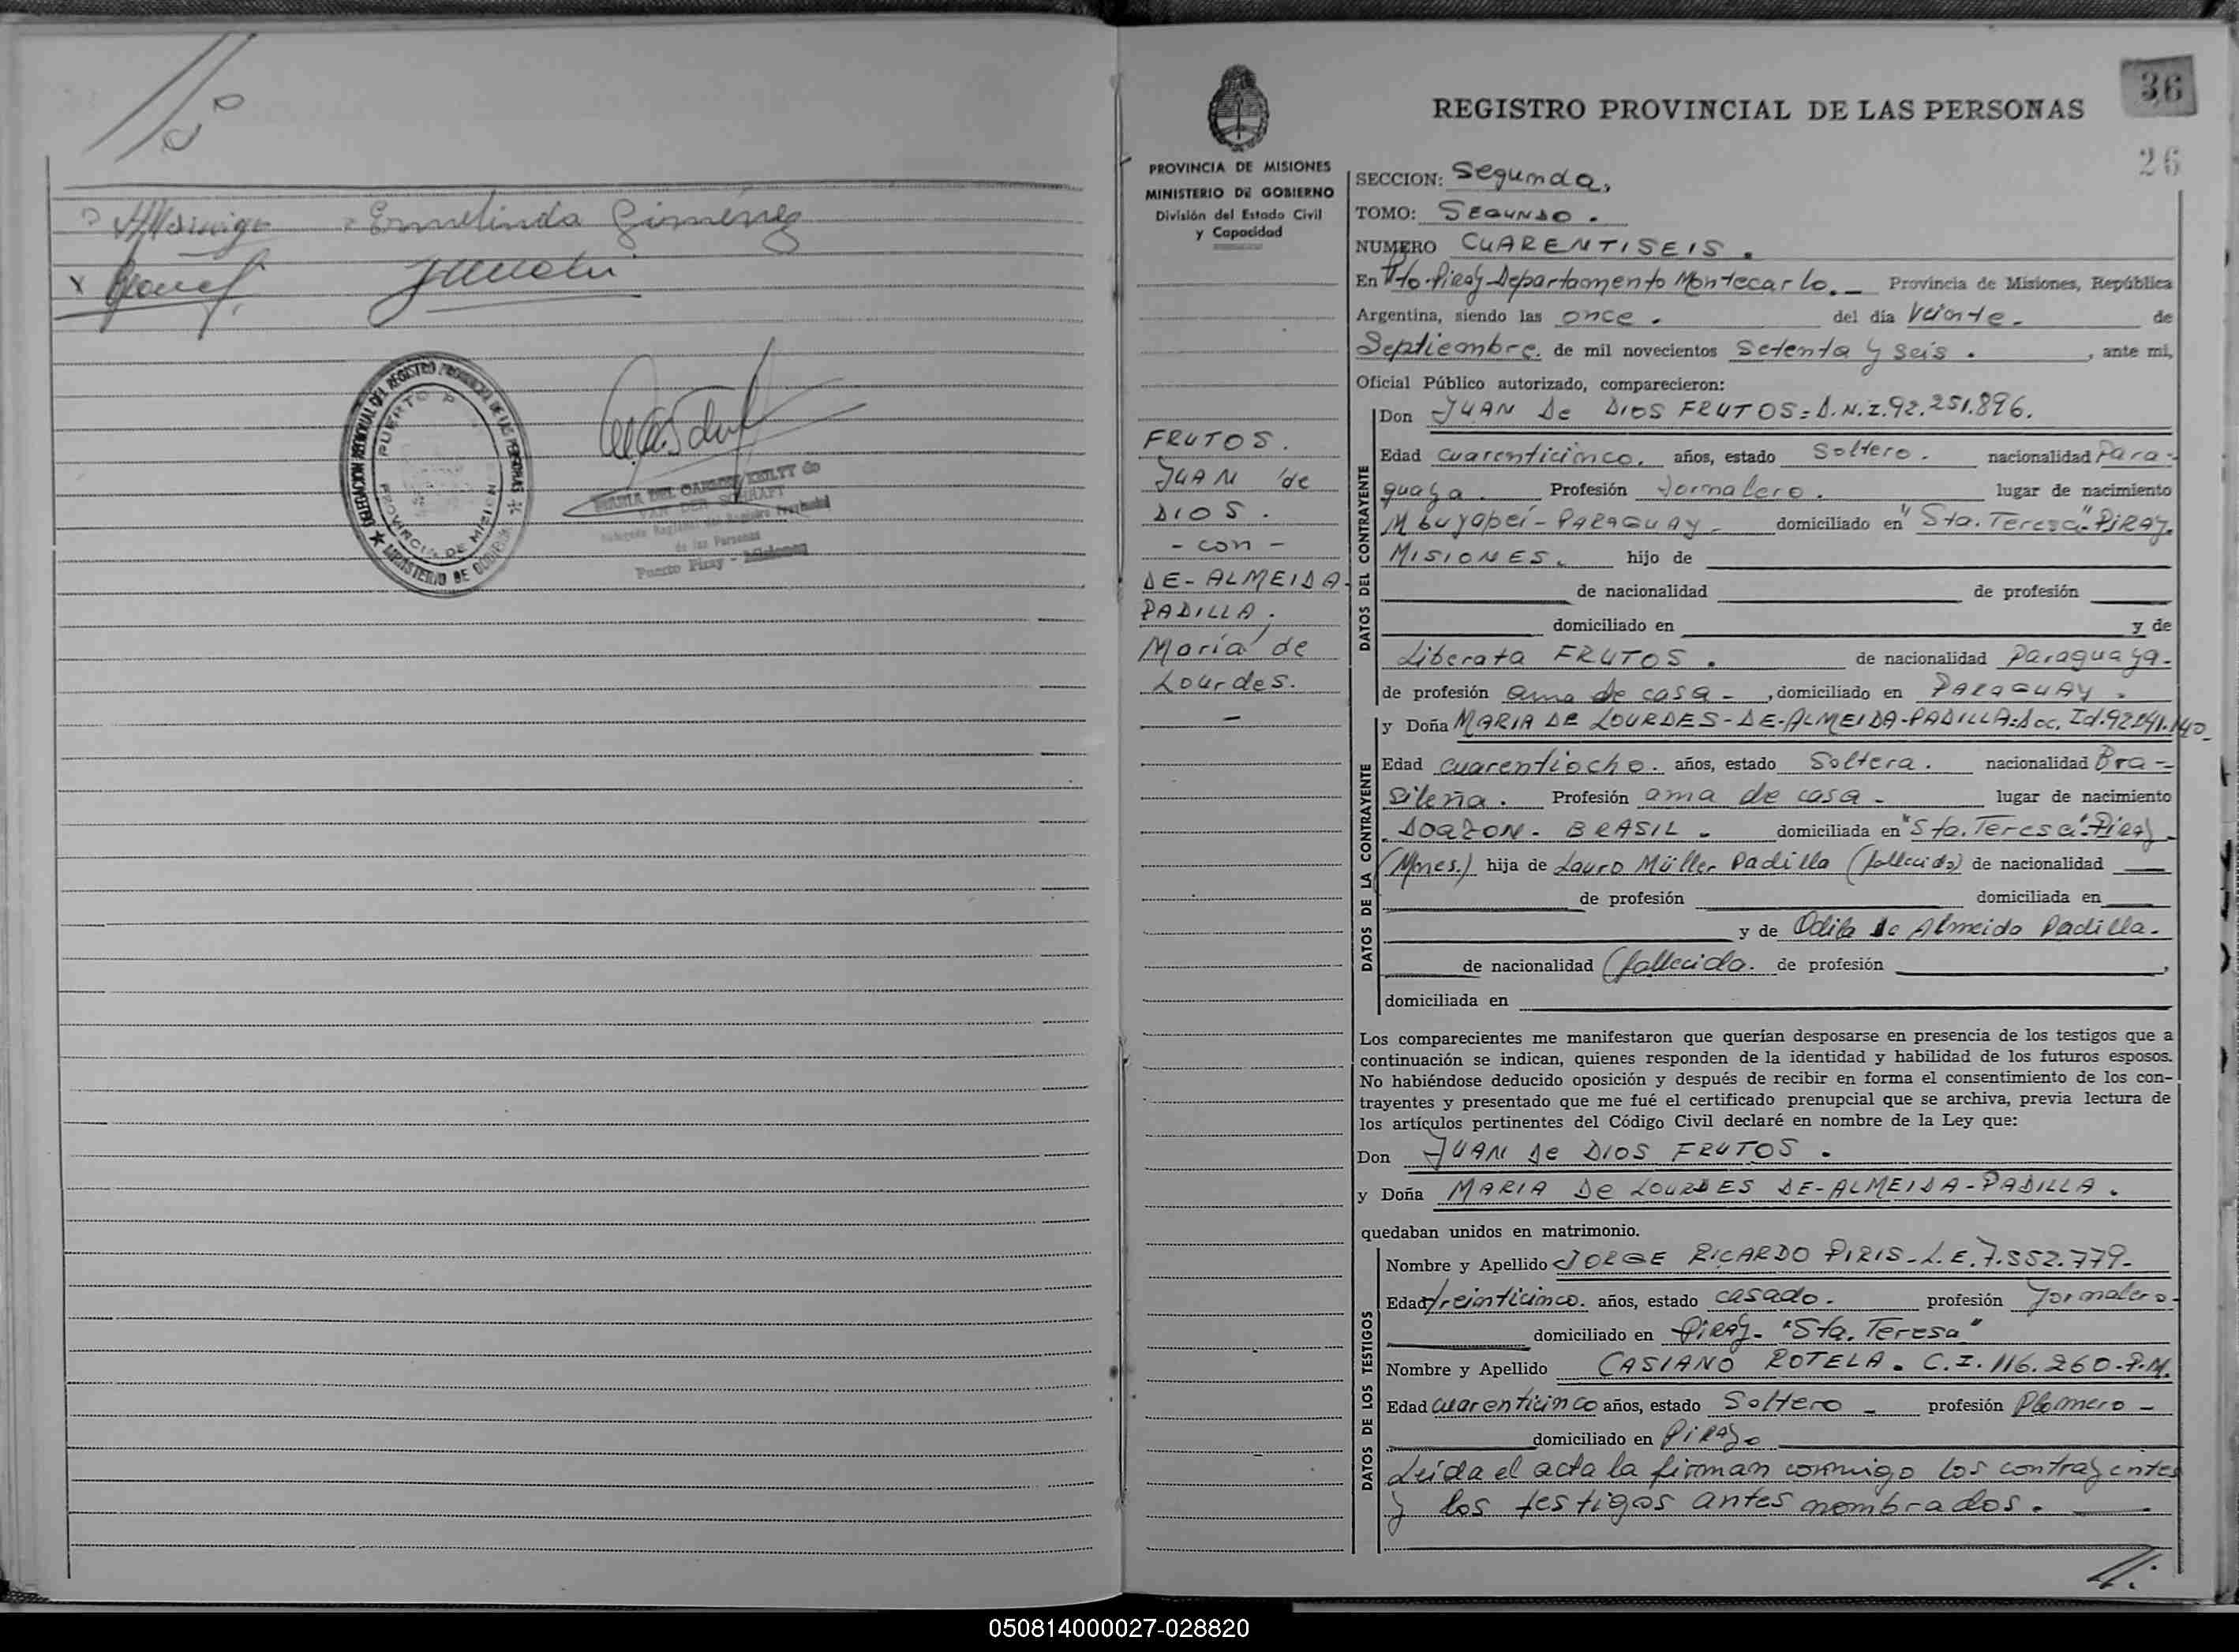 Ermelinda Giménez
DELEGACION REGIONAL DEL REGISTRO PROVINCIAL DE LAS PERSONAS
MINISTERIO DE GOBIERNO
PUERTO P
PROVINCIA DE MISIONES
MARIA DEL CARMEN REILTY de
VAN DER SCHRAFT
Delegada Regional del Registro Provincial
de las Personas
Puerto Piray - Misiones
36
REGISTRO PROVINCIAL DE LAS PERSONAS
26
PROVINCIA DE MISIONES
MINISTERIO DE GOBIERNO
División del Estado Civil
y Capacidad
FRUTOS.
JUAN de
DIOS.
- con -
DE-ALMEIDA-
PADILLA;
María de
Lourdes.
SECCION: Segunda.
TOMO: SEGUNDO.
NUMERO CUARENTISEIS.
En Pto. Piray-Departamento Montecarlo. Provincia de Misiones, República
Argentina, siendo las once. del día Veinte. de
Septiembre. de mil novecientos Setenta y Seis. , ante mi,
Oficial Público autorizado, comparecieron:
DATOS DEL CONTRAYENTE
Don JUAN De DIOS FRUTOS=D.N.I.92.251.896.
Edad cuarenticinco. años, estado Soltero. nacionalidad Para-
guaya. Profesión Jornalero. lugar de nacimiento
Mbuyapei-PARAGUAY- domiciliado en "Sta. Teresa"-PIRAY.
MISIONES. hijo de
de nacionalidad de profesión
domiciliado en y de
Liberata FRUTOS. de nacionalidad Paraguaya-
de profesión ama de casa- , domiciliado en PARAGUAY.
DATOS DE LA CONTRAYENTE
y Doña MARIA DE LOURDES-DE-ALMEIDA-PADILLA=Doc. Id.92.141.140
Edad cuarentiocho. años, estado Soltera. nacionalidad Bra-
sileña. Profesión ama de casa- lugar de nacimiento
BRASIL. domiciliada en "Sta. Teresa"-Piray
(Mnes.) hija de Lauro Müller Padilla (fallecido) de nacionalidad
de profesión domiciliada en
y de Odila de Almeida Padilla.
de nacionalidad (fallecida. de profesión ,
domiciliada en
Los comparecientes me manifestaron que querían desposarse en presencia de los testigos que a
continuación se indican, quienes responden de la identidad y habilidad de los futuros esposos.
No habiéndose deducido oposición y después de recibir en forma el consentimiento de los con-
trayentes y presentado que me fué el certificado prenupcial que se archiva, previa lectura de
los artículos pertinentes del Código Civil declaré en nombre de la Ley que:
Don JUAN De DIOS FRUTOS.
y Doña MARIA De LOURDES DE-ALMEIDA-PADILLA.
quedaban unidos en matrimonio.
DATOS DE LOS TESTIGOS
Nombre y Apellido JORGE RICARDO PIRIS-L.E.7.552.779-
Edad treinticinco. años, estado casado. profesión Jornalero-
domiciliado en Piray- "Sta. Teresa"
Nombre y Apellido CASIANO ROTELA. C.I.116.260-P.M.
Edad cuarenticinco años, estado Soltero- profesión Plomero-
domiciliado en PIRAY-
Leída el acta la firman conmigo los contrayentes
y los testigos antes nombrados.
050814000027-028820